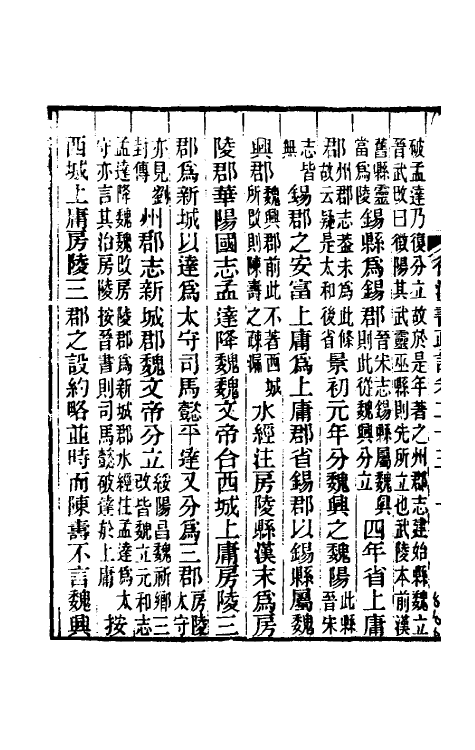 破孟達乃復分立故於是年著之州郡志建始縣魏立
晉武改曰
陽其武靈巫縣則先所立也武陵本前漢
舊縣靈
當為陵
錫縣為錫郡
晉宋志錫縣屬魏興
郡則此從魏興分立
四年省上庸
郡
州郡志蓋未為此條
故云疑是太和後省
景初元年分魏興之魏陽
此縣
晉宋
志皆
無
錫郡之安富上庸為上庸郡省錫郡以錫縣屬魏
興郡
魏興郡前此不著西城
所改則陳壽之疎漏
水經注房陵縣漢末為房
陵郡華陽國志孟達降魏魏文帝合西城上庸房陵三
郡為新城以達為太守司馬懿平達又分為三郡
房陵
太守
亦見劉
封傳
州郡志新城郡魏文帝分立
綏陽昌魏祈鄉三
改皆魏立元和志
孟達降魏魏改房陵郡為新城郡水經注孟達為太
守亦言其治房陵按晉書則司馬懿破達於上庸
按
西城上庸房陵三郡之設約略並時而陳壽不言魏興